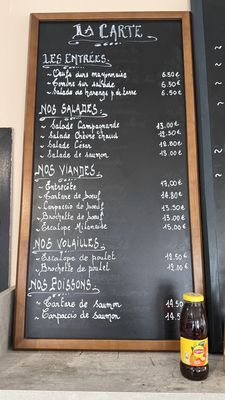 LA CARTE
LES ENTRÉES:
~ Oeufs durs mayonnaise 6.50€
~ Terrine sur salade 6.50€
~ Salade de harengs p. de terre 6.50€
NOS SALADES:
~ Salade Campagnarde 13.00€
~ Salade Chèvre chaud 12.50€
~ Salade César 12.80€
~ Salade de saumon 13.00€
NOS VIANDES
~ Entrecôte 17.00€
~ Tartare de bœuf 14.80€
~ Carpaccio de bœuf 13.50€
~ Brochette de bœuf 13.00€
~ Escalope Milanaise 15.00€
NOS VOLAILLES
~ Escalope de poulet 12.50€
~ Brochette de poulet 12.00€
NOS POISSONS
~ Tartare de saumon 14.50
~ Carpaccio de saumon 14.50